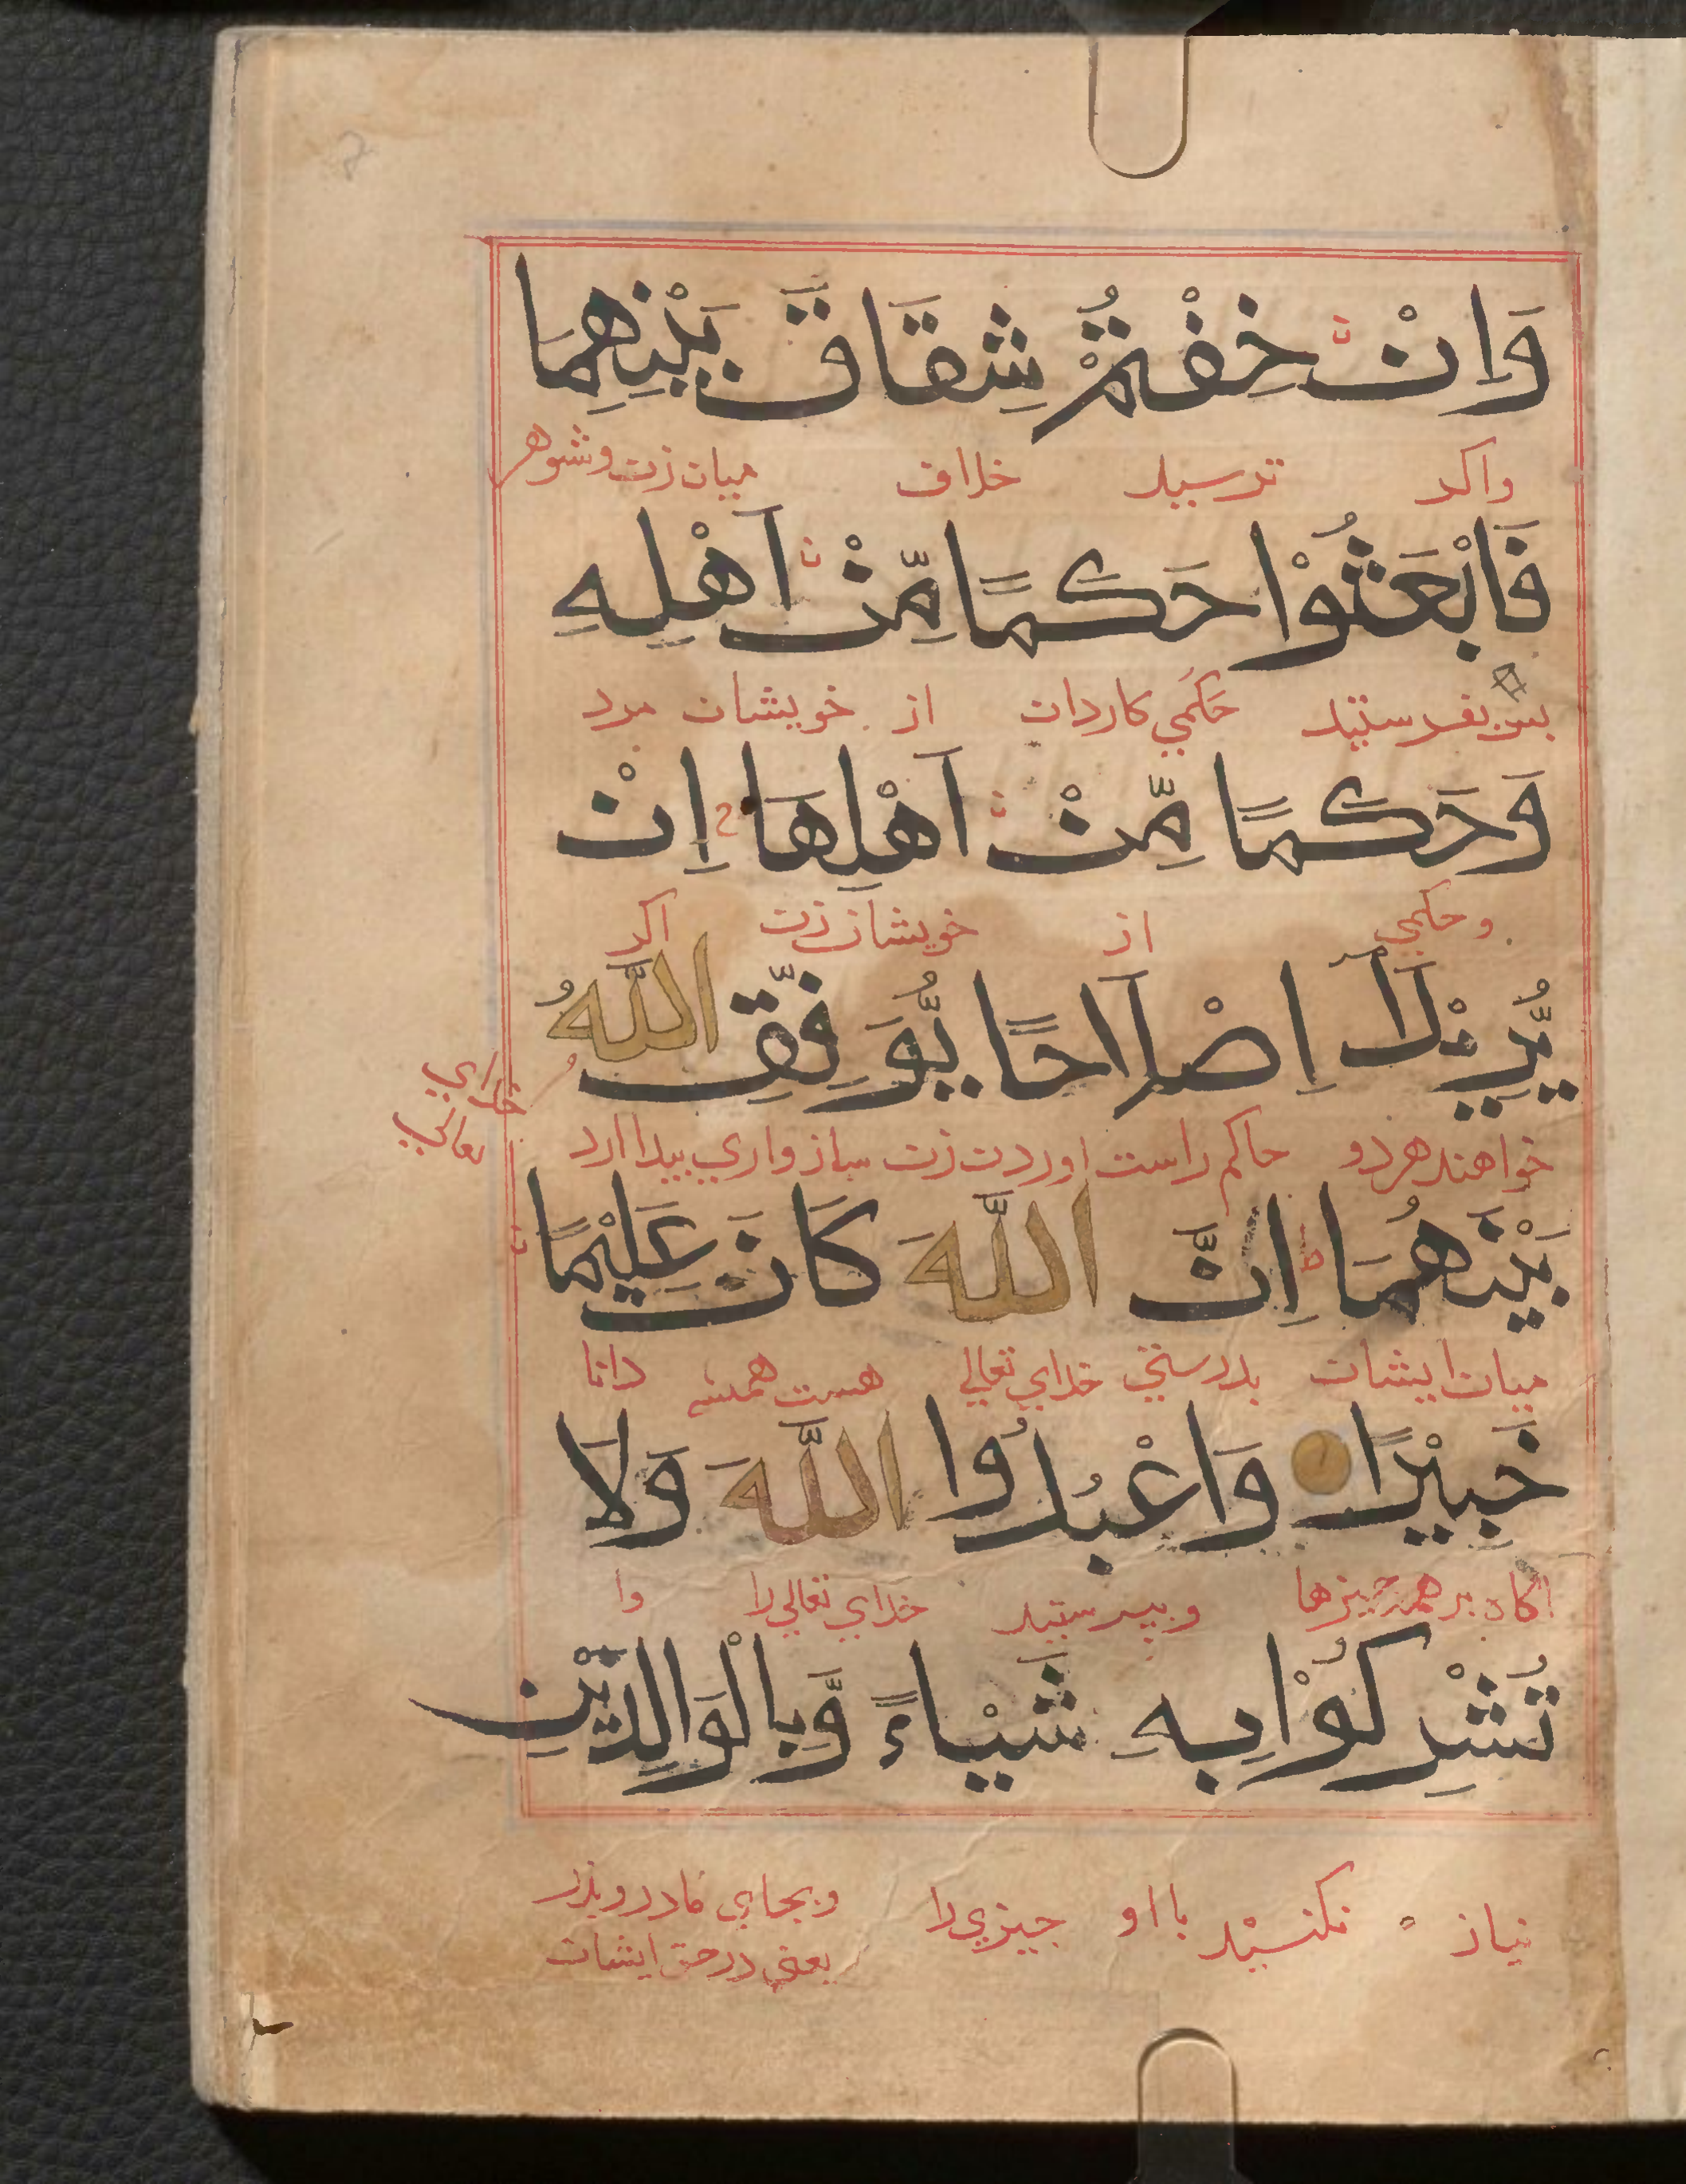 وَاِنْ خِفْتُمْ شِقَاقَ بَيْنِهِمَا
واكر ترسيد خلاف ميان زن وشوهر
فَابْعَثُوْا حَكَمًا مِّنْ اَهْلِهِ
بس بفرستيد حَكَمي كاردان از خويشان مرد
وَحَكَمًا مِّنْ اَهْلِهَا اِنْ
وحكمي از خويشان زن اكر
يُّرِيْدَا اِصْلَاحًا يُّوَفِّقِ اللّٰهُ
خواهند هر دو حاكم راست اوردن زن سازواري بيدا ارد
خداي
تعالي
بَيْنَهُمَا اِنَّ اللّٰهَ كَانَ عَلِيْمًا
ميان ايشان بدرستي خداي تعالي هست هميشه دانا
خَبِيْرًا وَاعْبُدُوا اللّٰهَ وَلَا
اكاه بر همه جيزها وبپرستيد خداي تعالي را وا
تُشْرِكُوْا بِهِ شَيْـاءً وَّبِالْوَالِدَيْنِ
نياز نكنيد با او جيزي را وبجاي مادر وپدر
يعني در حق ايشان